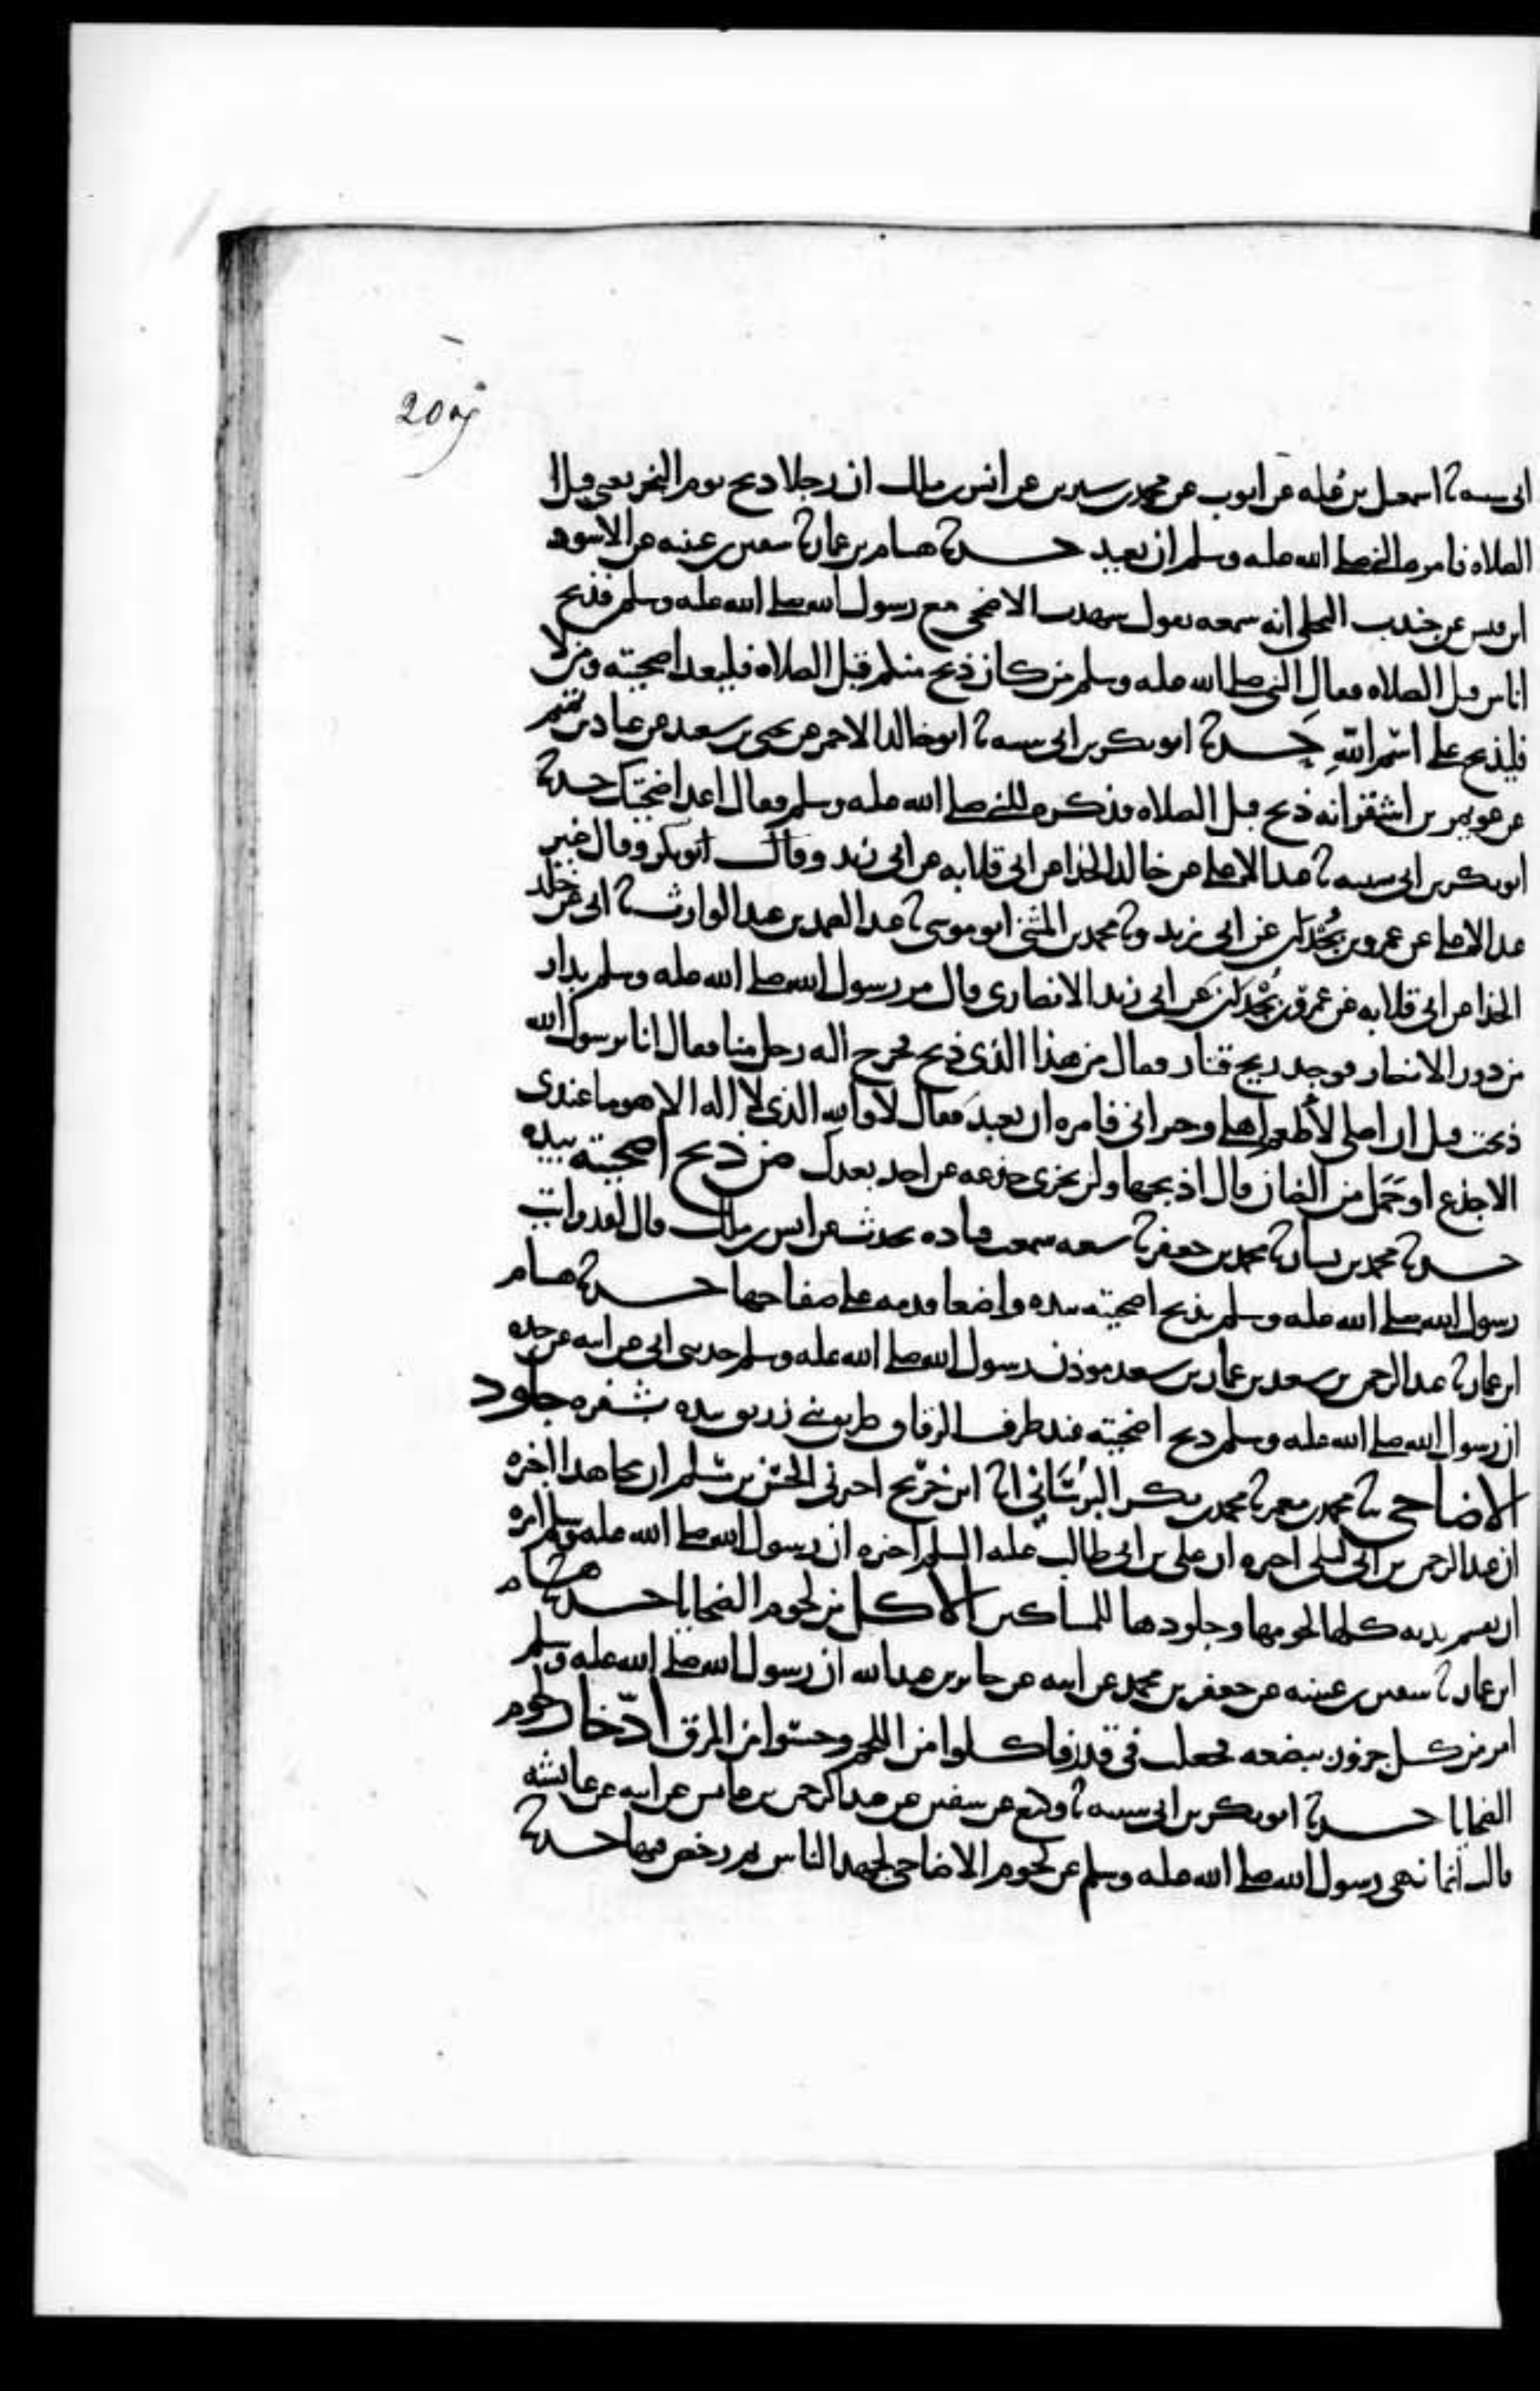 209
ابى شيبة ثنا اسمعيل بن علية عن ايوب عن محمد بن سيرين عن انس بن مالك ان رجلا ذبح يوم النحر يعنى قبل ا
الصلاه فامره النبى صلى الله عليه وسلم ان يعيد حدثنا هشام بن عمار ثنا سفين بن عيينه عن الاسود
ابن قيس عن جندب البجلى انه سمعه يقول شهدت الاضحى مع رسول الله صلى الله عليه وسلم فذبح
اناس قبل الصلاه فقال النبى صلى الله عليه وسلم من كان ذبح منكم قبل الصلاه فليعد اضحيته ومن لا
فليذبح على اسم الله حدثنا ابو بكر بن ابى شيبه ثنا ابو خالد الاحمر عن يحيى بن سعيد عن عباد بن تميم
عن عويمر بن اشقر انه ذبح قبل الصلاه فذكره للنبى صلى الله عليه وسلم فقال اعد اضحيتك حدثنا
ابو بكر بن ابى شيبه ثنا عبد الاعلى عن خالد الحذا عن ابى قلابه عن ابى زيد وقال ابو بكر وقال غير
عبد الاعلى عن عمرو بن بجدان عن ابى زيد وثنا محمد بن المثنى ابو موسى ثنا عبد الصمد بن عبد الوارث ثنا ابى عن خالد
الحذا عن ابى قلابه عن عمرو بن بجدان عن ابى زيد الانصارى قال مر رسول الله صلى الله عليه وسلم بدار
من دور الانصار فوجد ريح قتار فقال من هذا الذى ذبح فخرج اليه رجل منا فقال انا يرسول الله
ذبحت قبل ان اصلى لاطعم اهلى وجيرانى فامره ان يعيد فقال لا والله الذى لا اله الا هو ما عندى
الا جذع او حمل من الضان قال اذبحها ولن يجزى جذعه عن احد بعدك من ذبح اضحيته بيده
حدثنا محمد بن بشار ثنا محمد بن جعفر ثنا شعبه سمعت قتاده يحدث عن انس بن مالك قال لقد رايت
رسول الله صلى الله عليه وسلم يذبح اضحيته بيده واضعا قدمه على صفاحها حدثنا هشام
ابن عمار ثنا عبد الرحمن بن سعد بن عمار بن سعد موذن رسول الله صلى الله عليه وسلم حدثنى ابى عن ابيه عن جده
ان رسول الله صلى الله عليه وسلم ذبح اضحيته عند طرف الزقاق طريق بنى زريق بيده بشفره جلود
الاضاحى ثنا محمد بن معمر ثنا محمد بن بكر البرسانى انا ابن جريج اخبرنى الحسن بن مسلم ان مجاهدا اخبره
ان عبد الرحمن بن ابى ليلى اخبره ان على بن ابى طالب عليه السلم اخبره ان رسول الله صلى الله عليه وسلم امره
ان يقسم بدنه كلها لحومها وجلودها للمساكين الاكل من لحوم الضحايا حدثنا هشام
ابن عمار ثنا سفين بن عيينه عن جعفر بن محمد عن ابيه عن جابر بن عبد الله ان رسول الله صلى الله عليه وسلم
امر من كل جزور ببضعه فجعلت فى قدر فاكلوا من اللحم وحسوا من المرق ادخار لحوم
الضحايا حدثنا ابو بكر بن ابى شيبه ثنا وكيع عن سفين عن عبد الرحمن بن عابس عن ابيه عن عائشه
قالت انما نهى رسول الله صلى الله عليه وسلم عن لحوم الاضاحى لجهد الناس ثم رخص فيها حدثنا